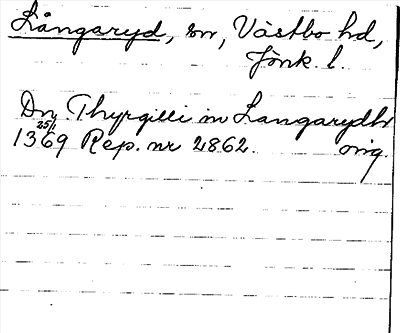 Långaryd, sn, Västbo hd,
Jönk. l.
Dn. Thyrgilli in Langarydh
25/1
1369 Rep. nr 2862. orig.